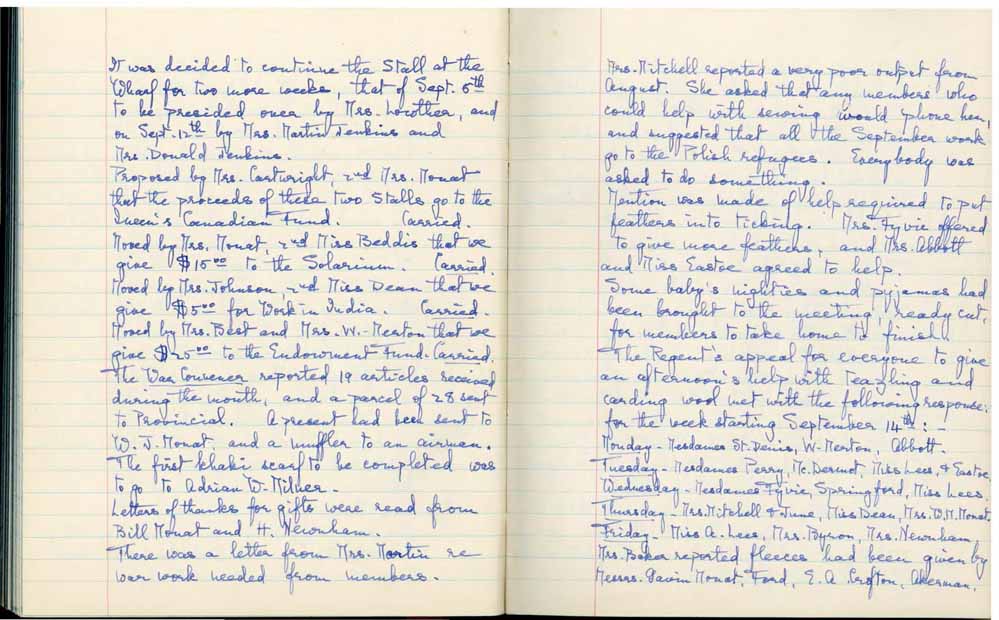 It was decided to continue the Stall at the
Wharf for two more weeks, that of Sept. 5th
to be presided over by Mrs. Lowther, and
on Sept. 12th by Mrs. Martin Jenkins and
Mrs. Donald Jenkins.
Proposed by Mrs. Cartwright, 2nd Mrs. Mouat
that the proceeds of these two Stalls go to the
Queen's Canadian Fund. Carried.
Moved by Mrs. Mouat, 2nd Miss Beddis that we
give $15.00 to the Solarium. Carried.
Moved by Mrs. Johnson 2nd Miss Dean that we
give $5.00 for Work in India. Carried.
Moved by Mrs. Best and Mrs. W-Merton that we
give $25.00 to the Endowment Fund. Carried.
The War Convener reported 19 articles received
during the month, and a parcel of 28 sent
to Provincial. A present had been sent to
W. J. Mouat, and a muffler to an airman.
The first khaki scarf to be completed was
to go to Adrian W-Milner.
Letters of thanks for gifts were read from
Bill Mouat and H. Newnham.
There was a letter from Mrs. Martin re
war work needed from members.
Mrs. Mitchell reported a very poor output from
August. She asked that any members who
could help with sewing would 'phone her,
and suggested that all the September work
go to the Polish refugees. Everybody was
asked to do something.
Mention was made of help required to put
feathers into ticking. Mrs. Fyvie offered
to give more feathers, and Mrs. Abbott
and Miss Eastoe agreed to help.
Some baby's nighties and pyjamas had
been brought to the meeting, ready cut,
for members to take home to finish.
The Regent's appeal for everyone to give
an afternoon's help with teazling and
carding wool met with the following response:
for the week starting September 14th: -
Monday - Mesdames St. Denis, W-Merton, Abbott.
Tuesday - Mesdames Perry, Mc.Dermot, Miss Lees, & Eastoe,
Wednesday - Mesdames Fyvie, Springford, Miss Lees.
Thursday - Mrs. Mitchell & June, Miss Dean, Mrs. W.M. Mouat.
Friday - Miss A. Lees, Mrs. Byron, Mrs. Newnham,
Mrs. Baker reported fleeces had been given by
Messrs. Gavin Mouat, Ford, E. A. Crofton, Akerman,